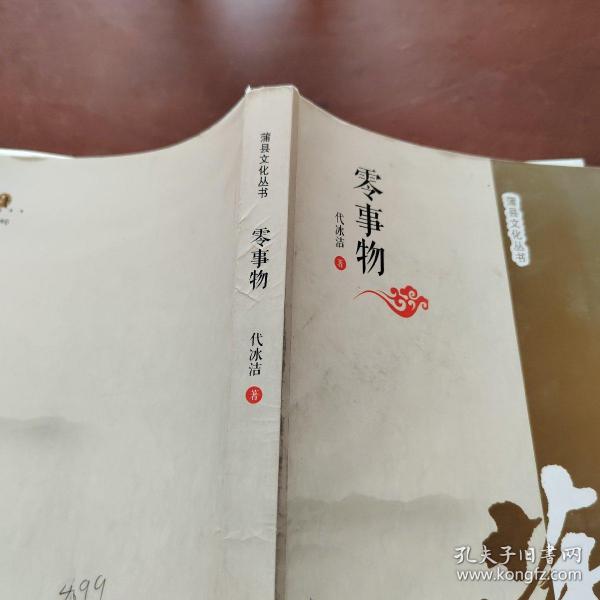 蒲县文化丛书
零事物
代冰洁
著
零事物
代冰洁
著
蒲县文化丛书
499
孔夫子旧书网
www.kongfz.com